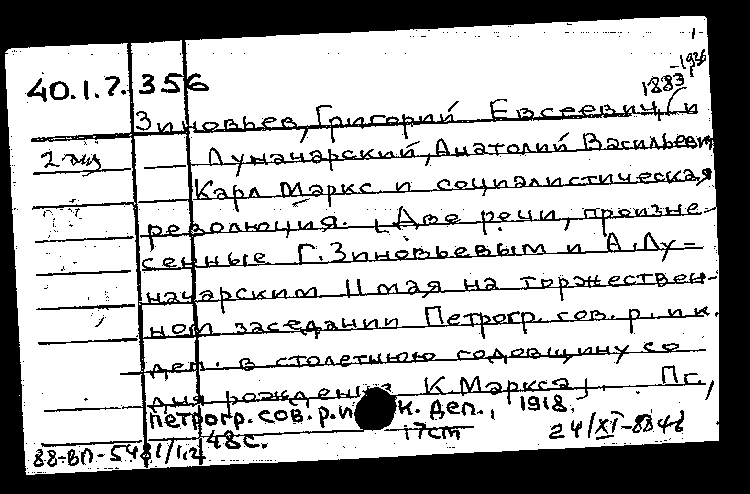 40.1.7.356
1883-1936
Зиновьев, Григорий Евсеевич и
2 экз
Луначарский, Анатолий Васильевич
Карл Маркс и социалистическая
революция. [Две речи, произне-
сенные Г. Зиновьевым и А. Лу-
начарским 11 мая на торжествен-
ном заседании Петрогр. сов. р. и к.
деп. в столетнюю годовщину со
дня рождения К. Маркса]. Пг.,
петрогр. сов. р. и к. деп., 1918.
48с. 17cm
88-ВП-5481/1,2
24/XI-88